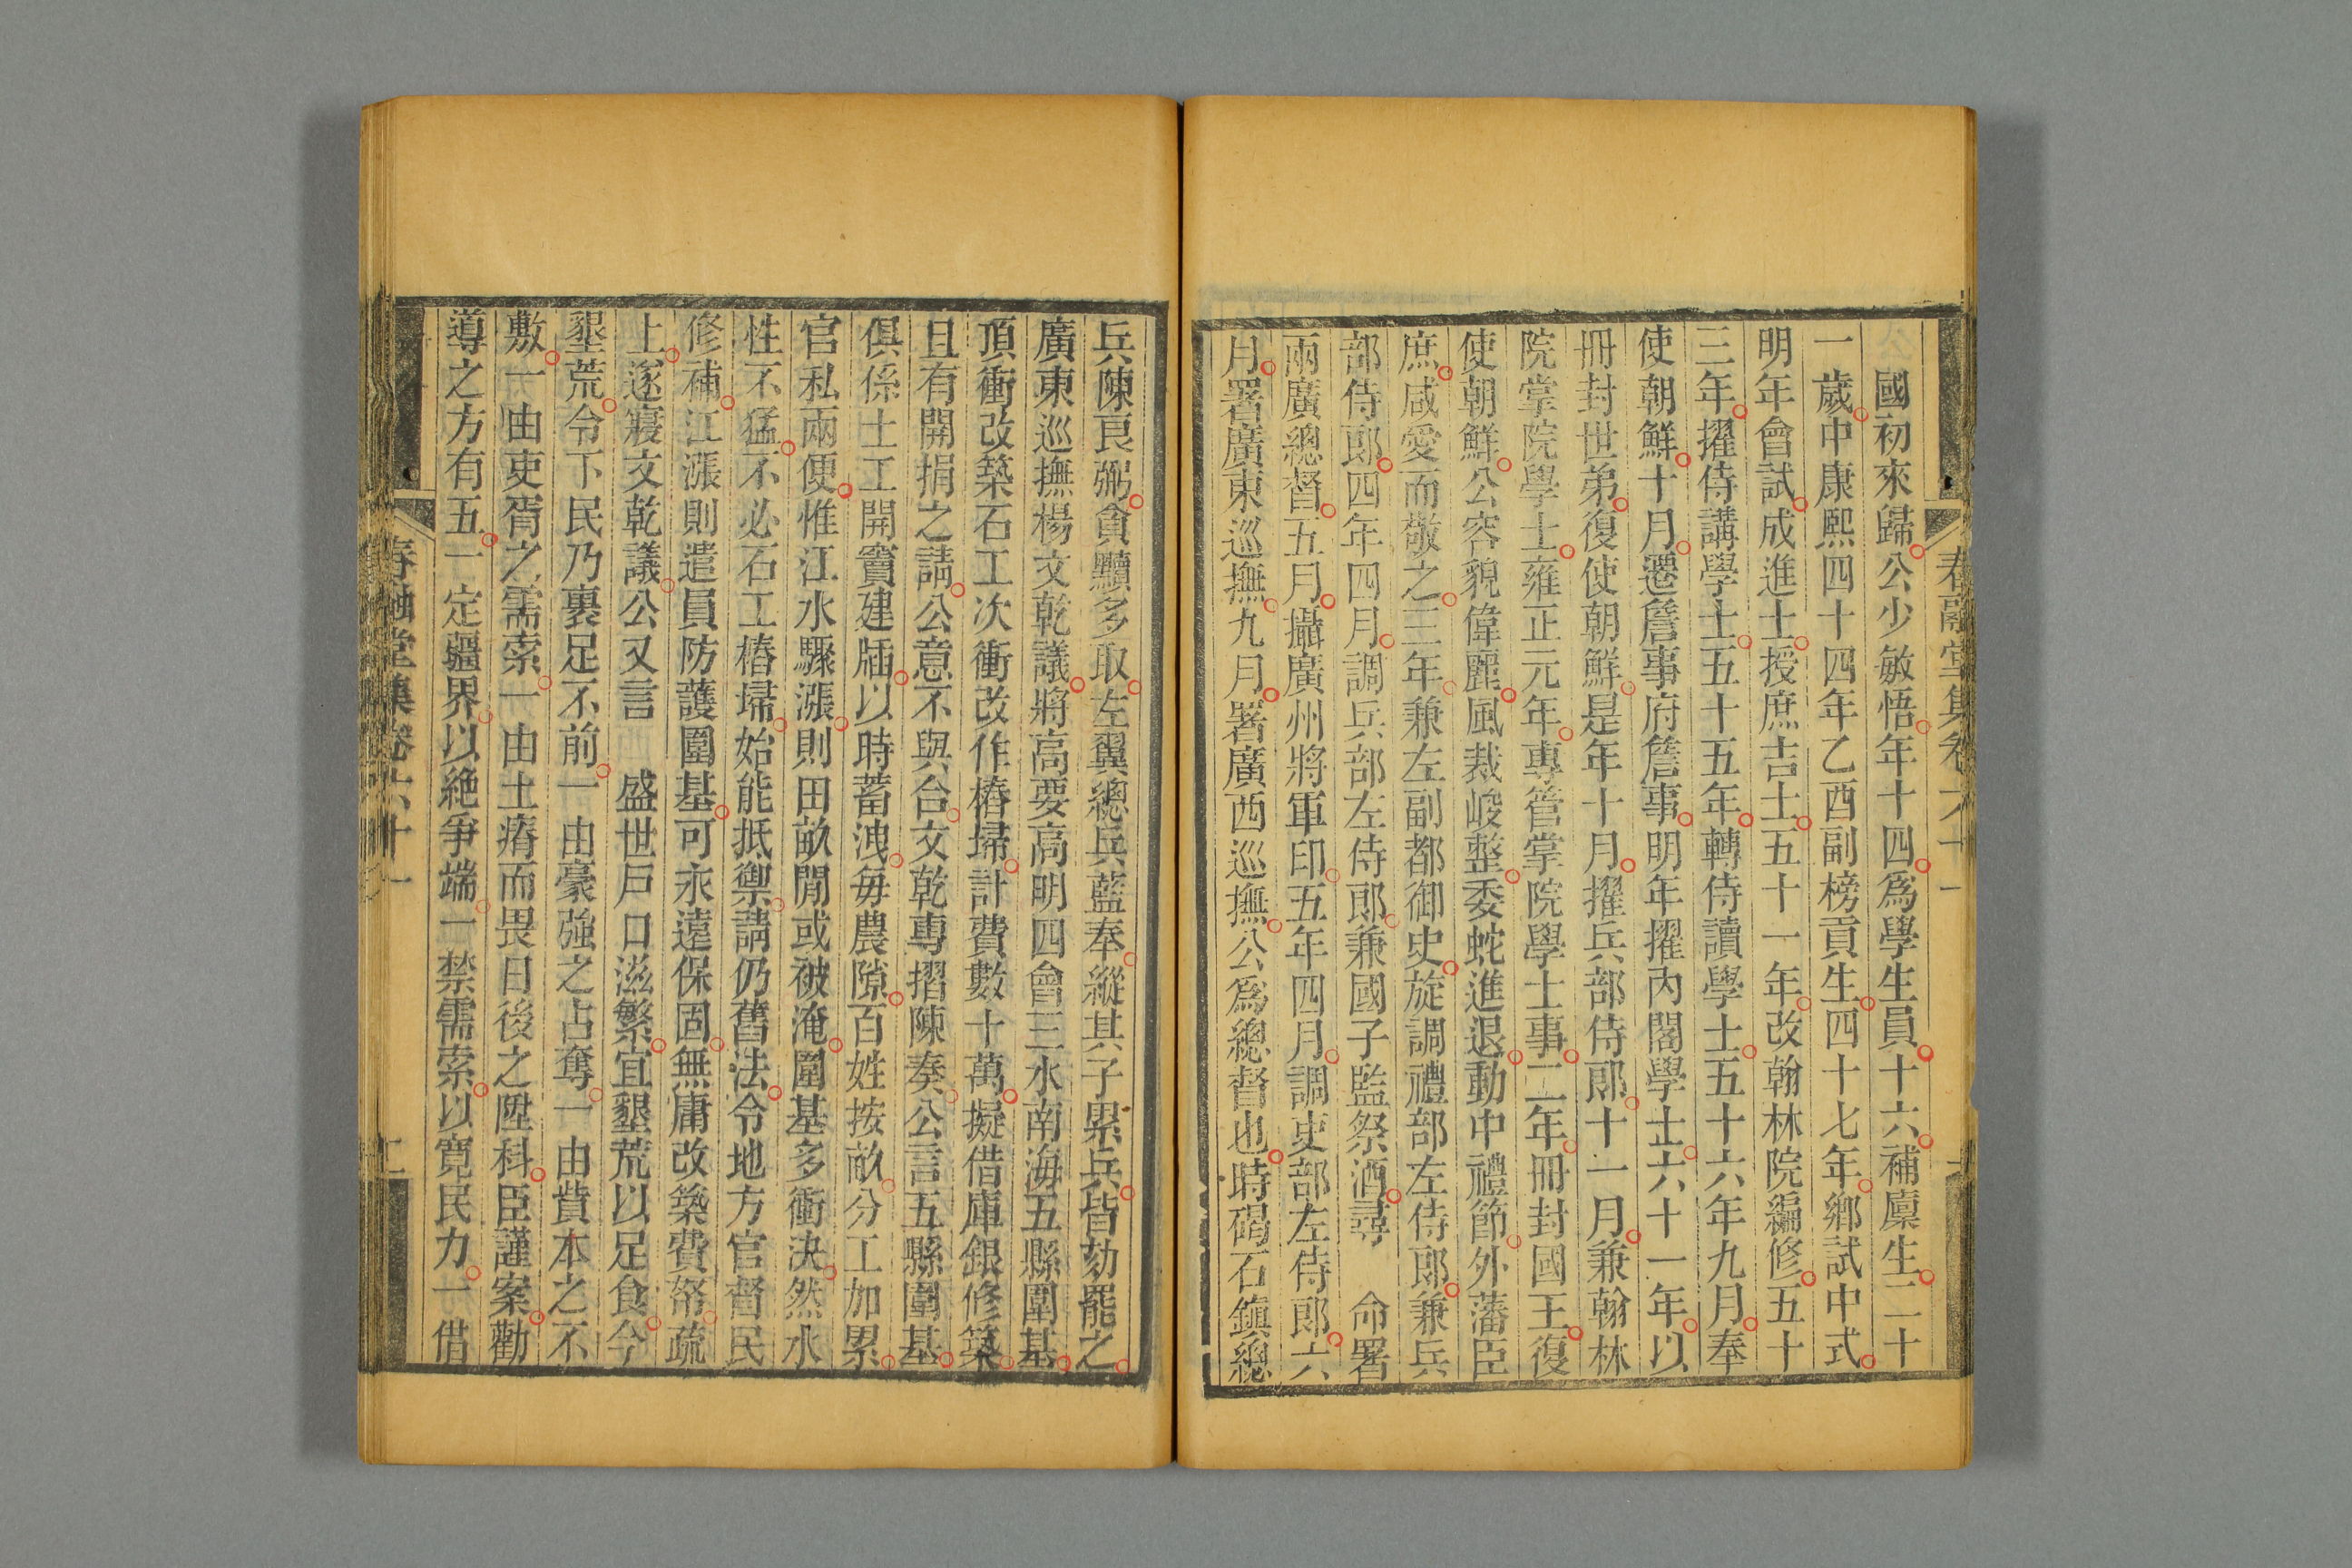 春融堂集卷六十一
國初來歸公少敏悟年十四爲學生員十六補廩生二十
一歲中康熙四十四年乙酉副榜貢生四十七年鄉試中式
明年會試成進士授庶吉士五十一年改翰林院編修五十
三年擢侍講學士五十五年轉侍讀學士五十六年九月奉
使朝鮮十月遷詹事府詹事明年擢內閣學士六十一年以
冊封世弟復使朝鮮是年十月擢兵部侍郎十一月兼翰林
院掌院學士雍正元年專管掌院學士事二年冊封國王復
使朝鮮公容貌偉麗風裁峻整委蛇進退動中禮節外藩臣
庶咸愛而敬之三年兼左副都御史旋調禮部左侍郎兼兵
部侍郎四年四月調兵部左侍郎兼國子監祭酒尋 命署
兩廣總督五月攝廣州將軍印五年四月調吏部左侍郎六
月署廣東巡撫九月署廣西巡撫公爲總督也時碣石鎮總
兵陳良弼貪黷多取左翼總兵藍奉縱其子累兵皆劾罷之
廣東巡撫楊文乾議將高要高明四會三水南海五縣圍基
頂衝改築石工次衝改作樁埽計費數十萬擬借庫銀修築
且有開捐之請公意不與合文乾專摺陳奏公言五縣圍基
俱係土工開竇建牐以時蓄洩每農隙百姓按畝分工加累
官私兩便惟江水驟漲則田畝閒或被淹圍基多衝決然水
性不猛不必石工樁埽始能抵禦請仍舊法令地方官督民
修補江漲則遣員防護圍基可永遠保固無庸改築費帑疏
上遂寢文乾議公又言 盛世戶口滋繁宜墾荒以足食今
墾荒令下民乃裹足不前一由豪強之占奪一由貲本之不
敷一由吏胥之需索一由土瘠而畏日後之陞科臣謹案勸
導之方有五一定疆界以絶爭端一禁需索以寬民力一借
春融堂集卷六十一